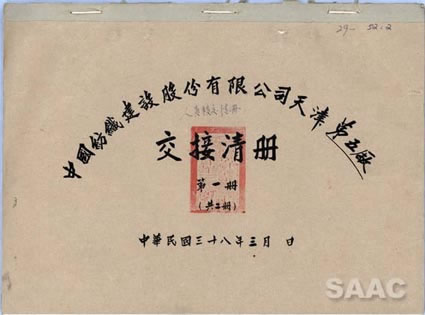 29- 52.2
中國紡織建設股份有限公司天津第五廠
交接清册
第一册
(共二册)
中華民國三十八年三月 日
SAAC